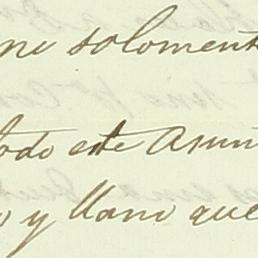 ni soloment
todo este Asun
o y llano que